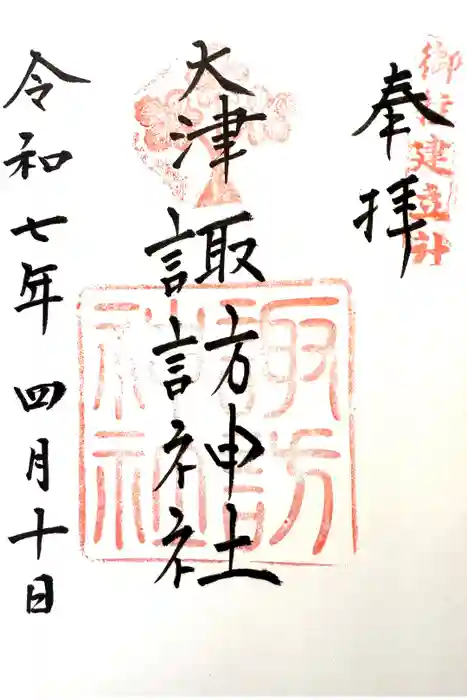 御柱建立社
奉拝
大津
諏訪神社
諏訪
神社
令和七年四月十日